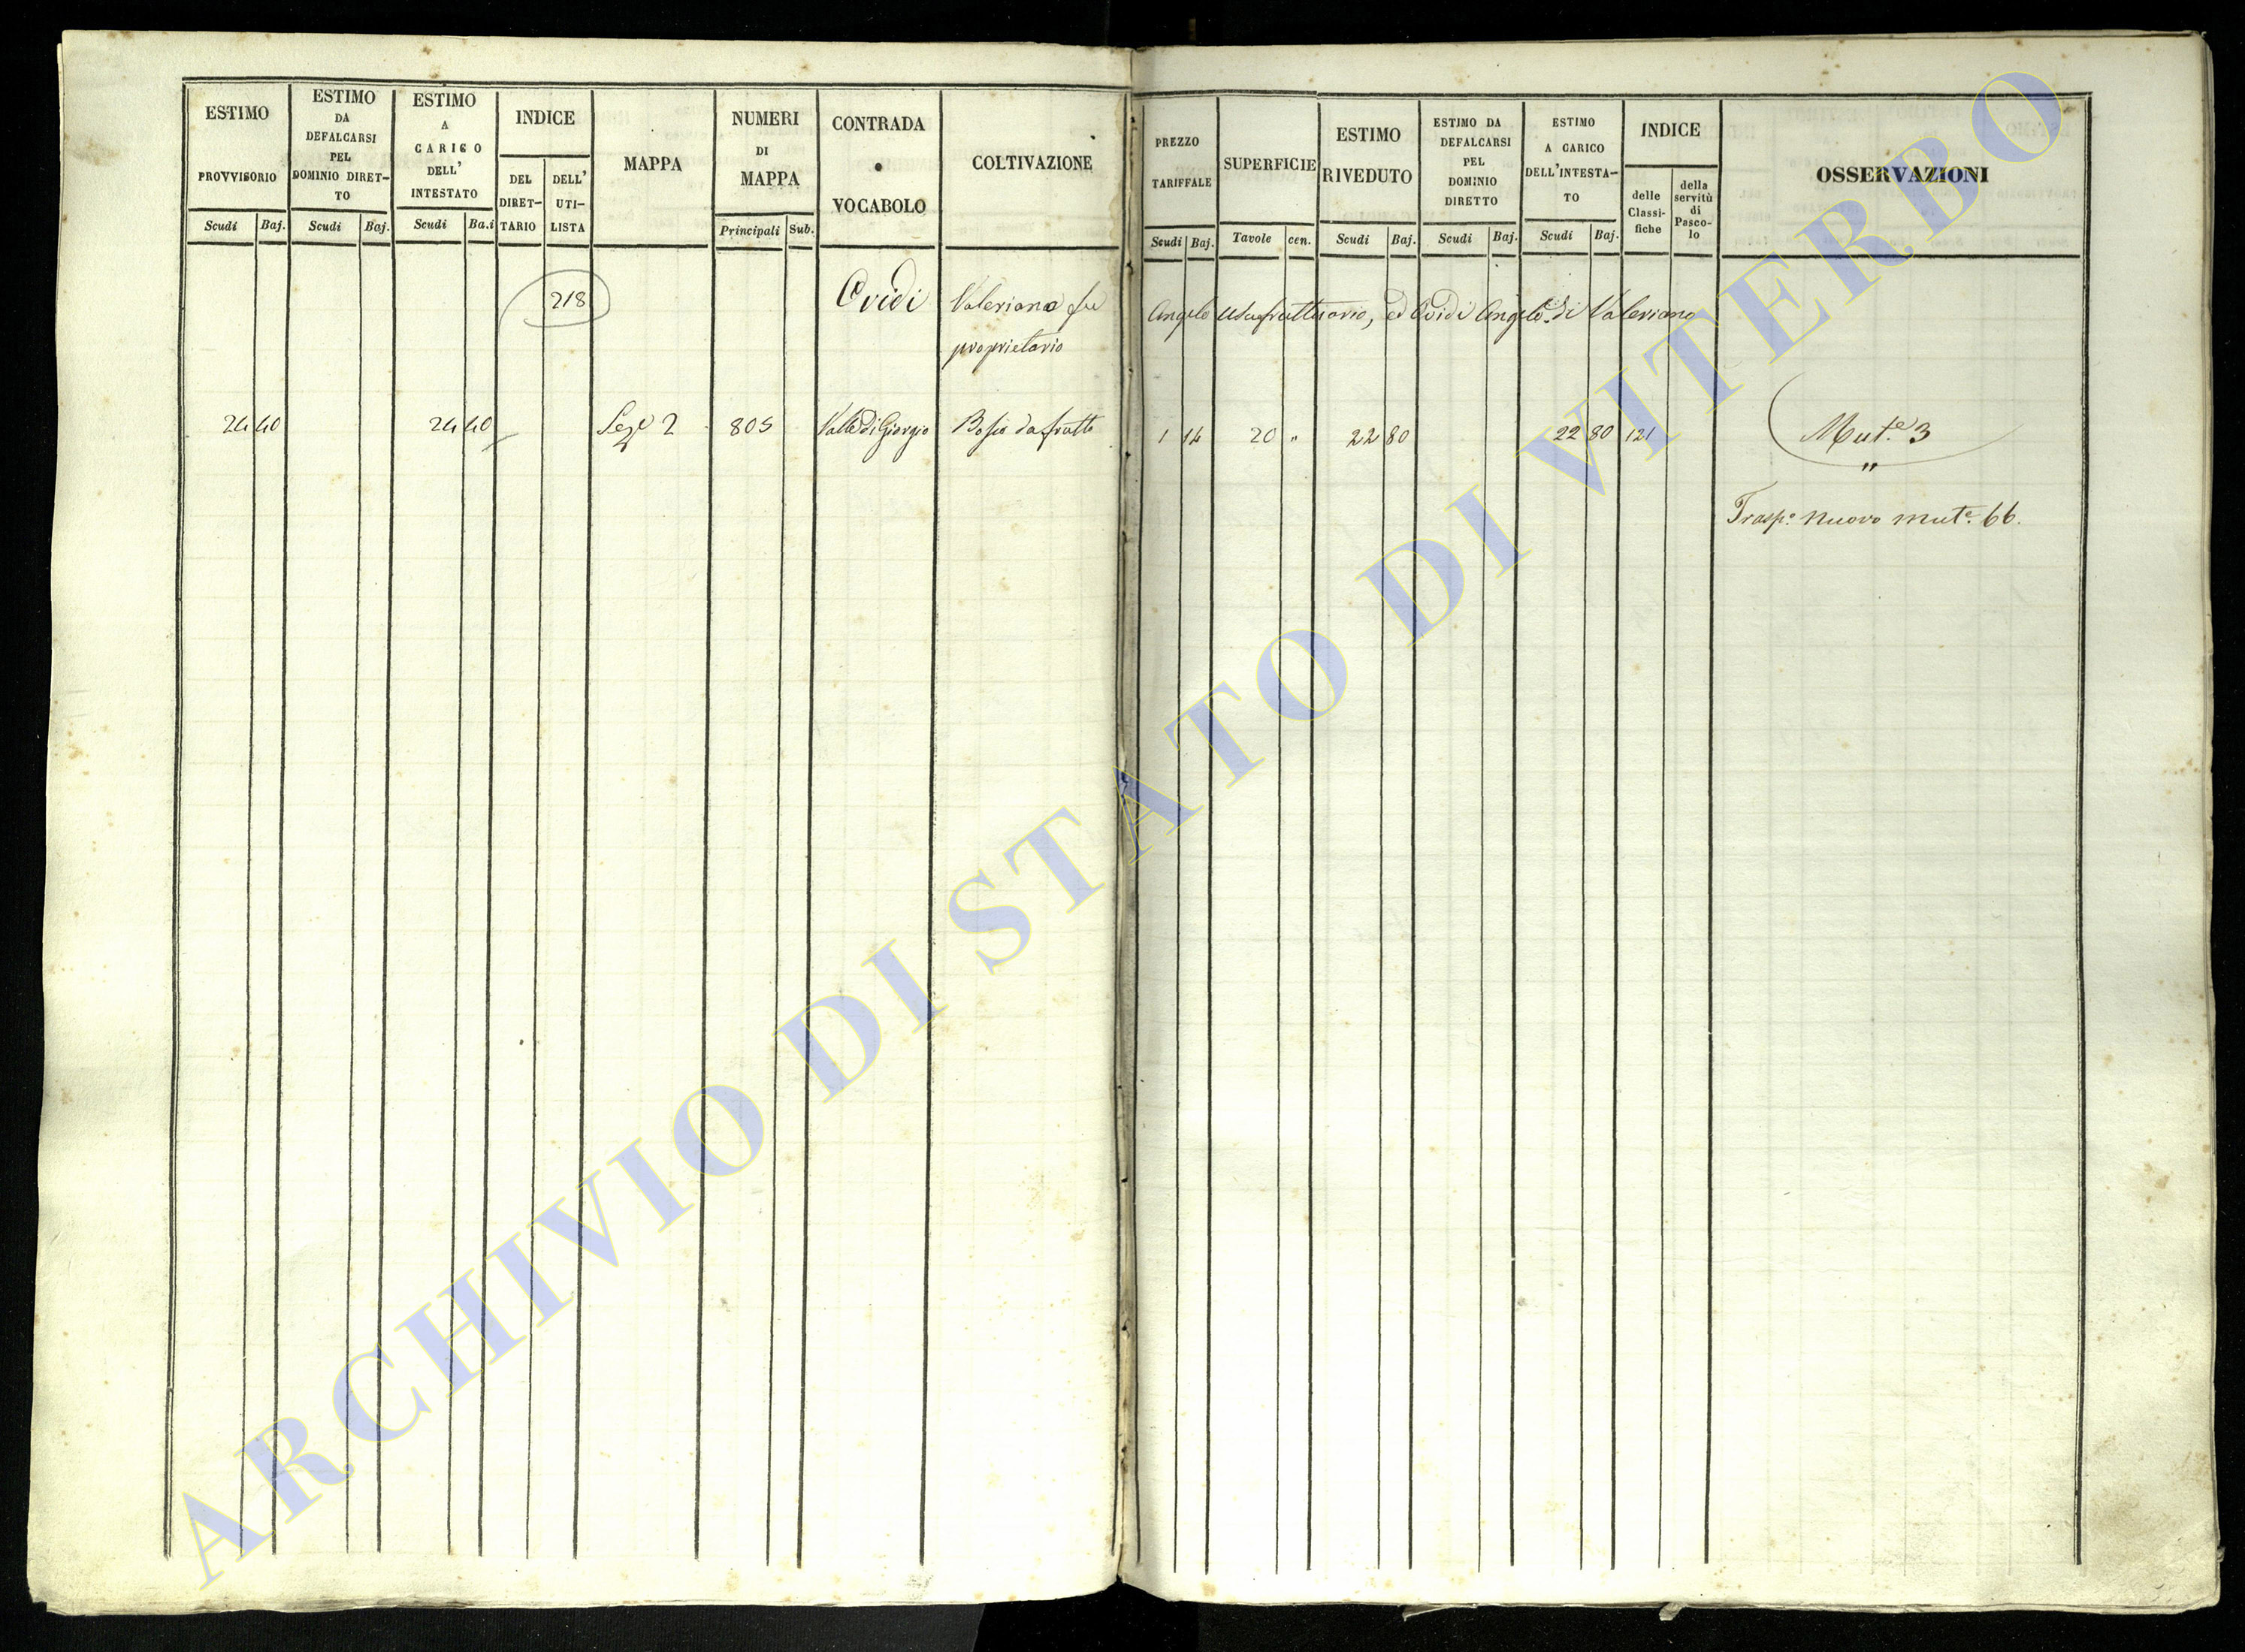 ESTIMO PROVVISORIO
Scudi Baj.
ESTIMO DA DEFALCARSI PEL DOMINIO DIRET- TO
Scudi Baj.
ESTIMO A CARICO DELL' INTESTATO
Scudi Ba.i
INDICE
DEL DIRET- TARIO
DELL' UTI- LISTA
MAPPA
NUMERI DI MAPPA
Principali Sub.
CONTRADA o VOCABOLO
COLTIVAZIONE
PREZZO TARIFFALE
Scudi Baj.
SUPERFICIE
Tavole cen.
ESTIMO RIVEDUTO
Scudi Baj.
ESTIMO DA DEFALCARSI PEL DOMINIO DIRETTO
Scudi Baj.
ESTIMO A CARICO DELL'INTESTA- TO
Scudi Baj.
INDICE
delle Classi- fiche
della servitù di Pasco- lo
OSSERVAZIONI
218 Ovidi Valeriano fu Angelo usufruttuario, ed Ovidi Angelo di Valeriano
proprietario
24 40 24 40 Sez.e 2 805 Valle di Giorgio Bosco da frutto 1 14 20 " 22 80 22 80 121 Mut.e 3
"
Trasp.o nuovo mut.e 66.
ARCHIVIO DI STATO DI VITERBO